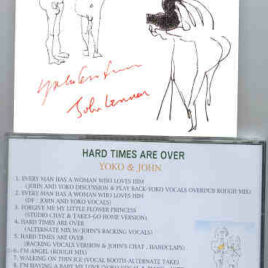 Yoko Ono Lennon
John Lennon
HARD TIMES ARE OVER
YOKO & JOHN
1. EVERY MAN HAS A WOMAN WHO LOVES HIM
(JOHN AND YOKO DISCUSSION & PLAY BACK-YOKO VOCALS OVERDUB ROUGH MIX)
2. EVERY MAN HAS A WOMAN WHO LOVES HIM
(DF : JOHN AND YOKO VOCALS)
3. FORGIVE ME MY LITTLE FLOWER PRINCESS
(STUDIO CHAT & TAKES-GO HOME VERSION)
4. HARD TIMES ARE OVER
(ALTERNATE MIX W/ JOHN'S BACKING VOCALS)
5. HARD TIMES ARE OVER
(BACKING VOCALS VERSION & JOHN'S CHAT, HANDCLAPS)
6. I'M ANGEL (ROUGH MIX)
7. WALKING ON THIN ICE (VOCAL BOOTH-ALTERNATE TAKE)
8. I'M HAVING A BABY MY LOVE